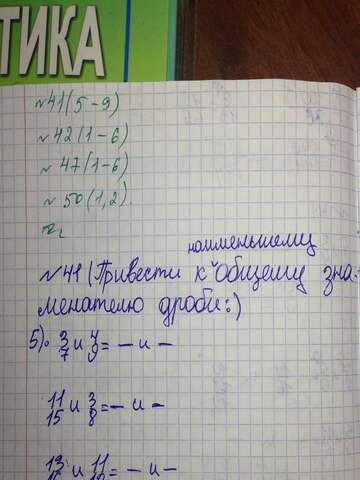 ТИКА
№41(5-9)
№42(1-6)
№47(1-6)
№50(1,2).
наименьшему
№41 (Привести к общему зна-
менателю дроби:)
5). 3/7 и 4/9 = — и —
11/15 и 3/8 = — и —
13 и 11 = — и —